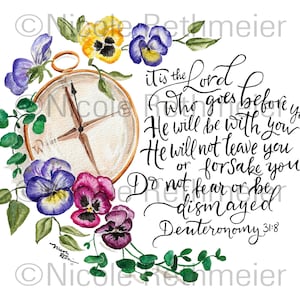 ©Nicole Rethmeier
it is the Lord
who goes before
He will be with you
He will not leave you
or forsake you
Do not fear or be
dismayed
Deuteronomy 31:8
©Nicole Rethmeier
©Nicole Rethmeier
©Nicole Rethmeier